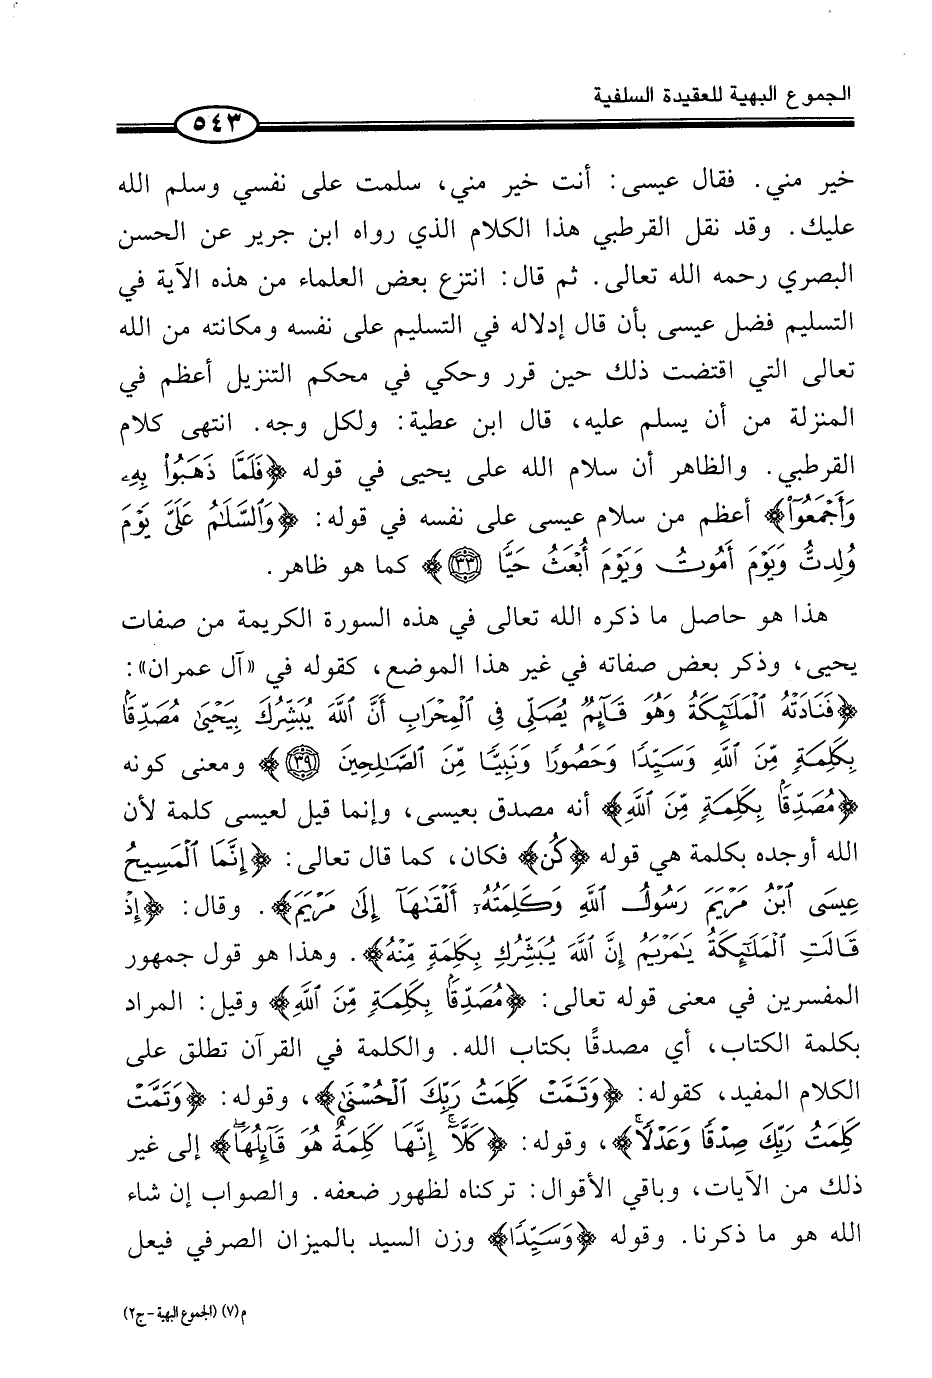 الجموع البهية للعقيدة السلفية
٥٤٣
خير مني. فقال عيسى: أنت خير مني، سلمت على نفسي وسلم الله
عليك. وقد نقل القرطبي هذا الكلام الذي رواه ابن جرير عن الحسن
البصري رحمه الله تعالى. ثم قال: انتزع بعض العلماء من هذه الآية في
التسليم فضل عيسى بأن قال إدلاله في التسليم على نفسه ومكانته من الله
تعالى التي اقتضت ذلك حين قرر وحكي في محكم التنزيل أعظم في
المنزلة من أن يسلم عليه، قال ابن عطية: ولكل وجه. انتهى كلام
القرطبي. والظاهر أن سلام الله على يحيى في قوله ﴿فَلَمَّا ذَهَبُوا۟ بِهِۦ
وَأَجْمَعُوٓا۟﴾ أعظم من سلام عيسى على نفسه في قوله: ﴿وَٱلسَّلَٰمُ عَلَىَّ يَوْمَ
وُلِدتُّ وَيَوْمَ أَمُوتُ وَيَوْمَ أُبْعَثُ حَيًّا ٣٣﴾ كما هو ظاهر.
هذا هو حاصل ما ذكره الله تعالى في هذه السورة الكريمة من صفات
يحيى، وذكر بعض صفاته في غير هذا الموضع، كقوله في «آل عمران»:
﴿فَنَادَتْهُ ٱلْمَلَٰٓئِكَةُ وَهُوَ قَآئِمٌ يُصَلِّى فِى ٱلْمِحْرَابِ أَنَّ ٱللَّهَ يُبَشِّرُكَ بِيَحْيَىٰ مُصَدِّقًۢا
بِكَلِمَةٍ مِّنَ ٱللَّهِ وَسَيِّدًا وَحَصُورًا وَنَبِيًّا مِّنَ ٱلصَّٰلِحِينَ ٣٩﴾ ومعنى كونه
﴿مُصَدِّقًۢا بِكَلِمَةٍ مِّنَ ٱللَّهِ﴾ أنه مصدق بعيسى، وإنما قيل لعيسى كلمة لأن
الله أوجده بكلمة هي قوله ﴿كُن﴾ فكان، كما قال تعالى: ﴿إِنَّمَا ٱلْمَسِيحُ
عِيسَى ٱبْنُ مَرْيَمَ رَسُولُ ٱللَّهِ وَكَلِمَتُهُۥٓ أَلْقَىٰهَآ إِلَىٰ مَرْيَمَ﴾. وقال: ﴿إِذْ
قَالَتِ ٱلْمَلَٰٓئِكَةُ يَٰمَرْيَمُ إِنَّ ٱللَّهَ يُبَشِّرُكِ بِكَلِمَةٍ مِّنْهُ﴾. وهذا هو قول جمهور
المفسرين في معنى قوله تعالى: ﴿مُصَدِّقًۢا بِكَلِمَةٍ مِّنَ ٱللَّهِ﴾ وقيل: المراد
بكلمة الكتاب، أي مصدقًا بكتاب الله. والكلمة في القرآن تطلق على
الكلام المفيد، كقوله: ﴿وَتَمَّتْ كَلِمَتُ رَبِّكَ ٱلْحُسْنَىٰ﴾، وقوله: ﴿وَتَمَّتْ
كَلِمَتُ رَبِّكَ صِدْقًا وَعَدْلًا﴾، وقوله: ﴿كَلَّآ إِنَّهَا كَلِمَةٌ هُوَ قَآئِلُهَا﴾ إلى غير
ذلك من الآيات، وباقي الأقوال: تركناه لظهور ضعفه. والصواب إن شاء
الله هو ما ذكرنا. وقوله ﴿وَسَيِّدًا﴾ وزن السيد بالميزان الصرفي فيعل
م(٧) (الجموع البهية - ج٢)